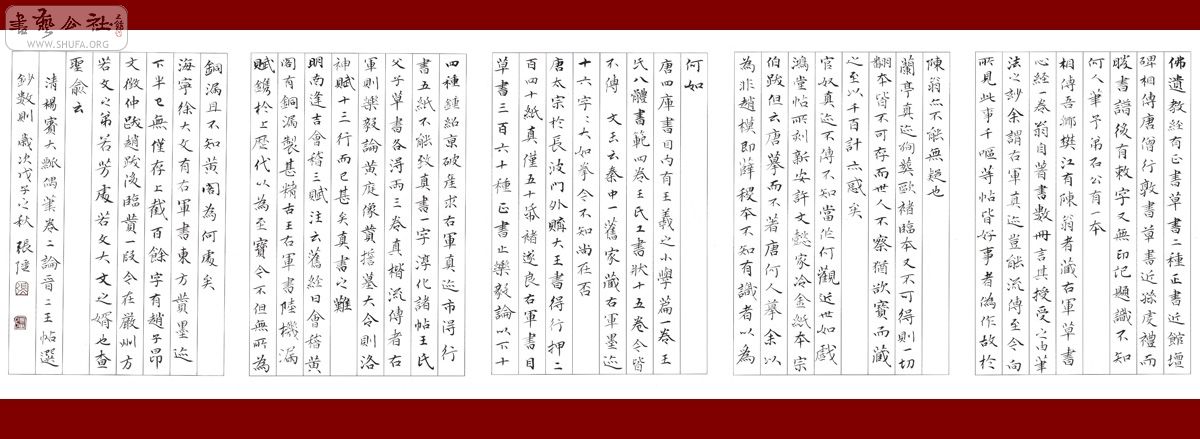 書藝公社
WWW.SHUFA.ORG
佛遺教經有正書草書二種正書近館壇
碑相傳唐僧行敦書草書近孫虔禮而
書譜後有敕字又無印記題識不知
何人筆予弟石公有一本
相傳吾鄉樊江有陳翁者藏右軍草書
心經一卷翁自普書數冊言其授受之由筆
法之妙余謂右軍真迹豈能流傳至今向
所見此事千嘔等帖皆好事者偽作故於
陳翁亦不能無疑也
蘭亭真迹殉葬歐褚臨本又不可得則一切
翻本皆不可存而世人不察猶欲寶而藏
之至以千百計亦惑矣
官奴真迹不傳不知當作何觀近世如戲
鴻堂帖所刻新安許文懿家冷金紙本宗
伯跋但云唐摹而不著唐何人摹余以
為非趙模即薛稷本不知有識者以為
何如
唐四庫書目內有王羲之小學篇一卷王
氏八體書範四卷王氏工書狀十五卷今皆
不傳 文玉云秦中一舊家藏右軍墨迹
十六字字大如拳今不知尚在否
唐太宗於長波門外購大王書得行押二
百四十紙真僅五十紙褚遂良右軍書目
草書三百六十種正書止樂毅論以下十
四種鍾紹京破產求右軍真迹市得行
書五紙不能致真書一字淳化諸帖王氏
父子草書各得兩三卷真楷流傳者右
軍則樂毅論黃庭像贊墓大令則洛
神賦十三行而已甚矣真書之難
明南逢吉會稽三賦注云舊經曰會稽黃
閣有銅漏製甚精古王右軍書陸機漏
賦鐫於上歷代以為至寶今不但無所為
銅漏且不知黃閣為何處矣
海寧徐大文有右軍書東方贊墨迹
下半已無僅存上截百餘字有趙子昂
文徵仲跋趙跋後臨贊一段今在嚴州方
若文之弟若芳處若文大文之婿也查
聖俞云
清楊賓大瓢偶筆卷二論晉二王帖選
鈔數則 歲次戊子之秋 張